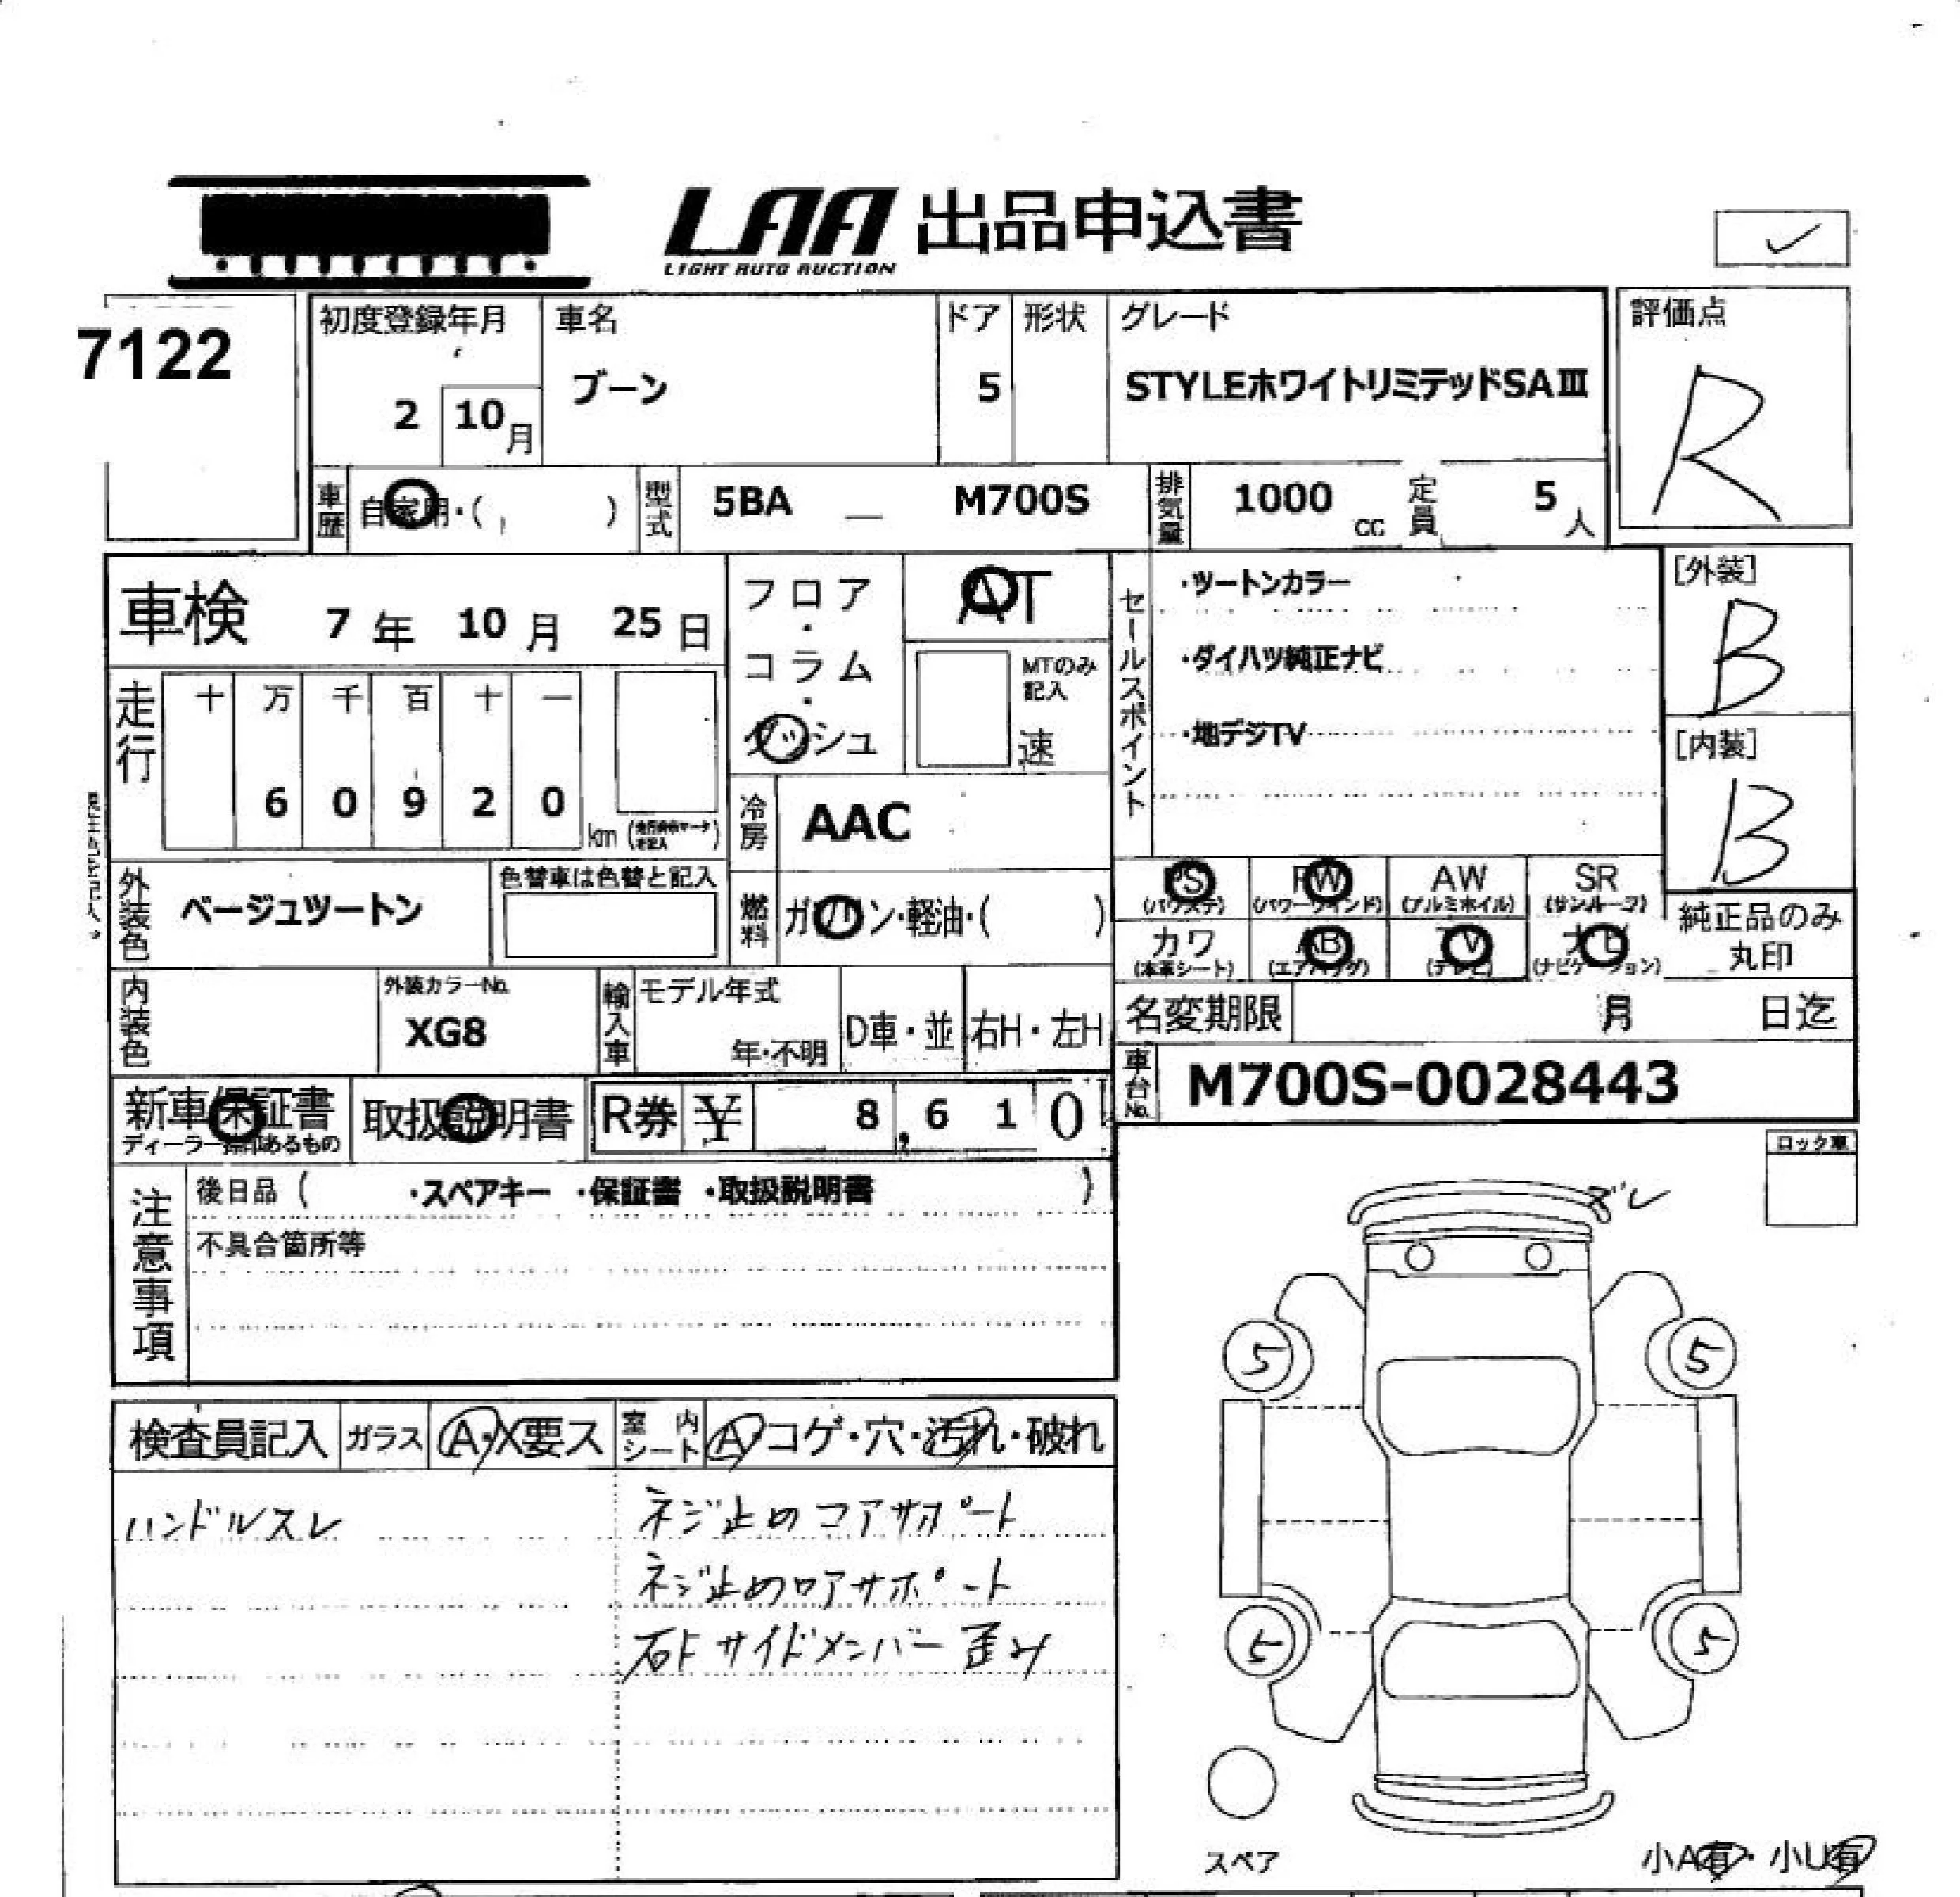 LAA 出品申込書
LIGHT AUTO AUCTION
7122
初度登録年月
2 10月
車名
ブーン
ドア
5
形状
グレード
STYLEホワイトリミテッドSAⅢ
評価点
R
車歴
自家用・( )
型式
5BA — M700S
排気量
1000 cc
定員
5人
車検 7年 10月 25日
走行
十 万 千 百 十 一
6 0 9 2 0 km
フロア・コラム・ダッシュ
AT
MTのみ記入
速
セールスポイント
・ツートンカラー
・ダイハツ純正ナビ
・地デジTV
[外装]
B
[内装]
B
冷房
AAC
外装色
ベージュツートン
色替車は色替と記入
燃料
ガソリン・軽油・( )
PS (パワステ)
PW (パワーウインド)
AW (アルミホイル)
SR (サンルーフ)
カワ (本革シート)
AB (エアバッグ)
TV (テレビ)
ナビ (ナビゲーション)
純正品のみ丸印
内装色
外装カラーNo.
XG8
輸入車
モデル年式
年・不明
D車・並
右H・左H
名変期限 月 日迄
車台No.
M700S-0028443
新車保証書
取扱説明書
R券 ¥ 8,610
注意事項
後日品( ・スペアキー ・保証書 ・取扱説明書 )
不具合箇所等
ロック車
ズレ
5
5
検査員記入
ガラス
A・X要ス
室内シート
Aコゲ・穴・汚れ・破れ
ハンドルスレ
ネジ止めコアサポート
ネジ止めロアサポート
右Fサイドメンバー歪み
5
5
スペア
小A有・小U有